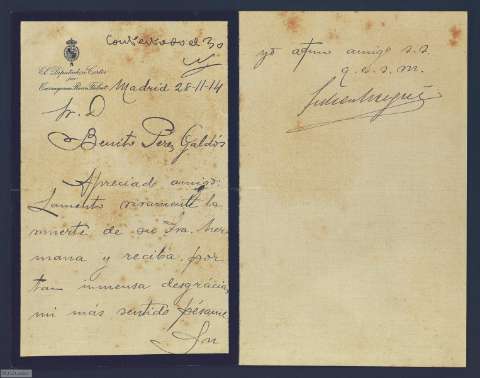 Contestado el 30
El Diputado a Cortes
por
Tarragona-Reus-Falset
Madrid 28-11-14
Sr. D
Benito Perez Galdós
Apreciado amigo:
Lamento vivamente la
muerte de su Sra. her
mana y reciba por
tan inmensa desgrácia,
mi más sentido pésame
Su
y afmo amigo s.s.
q.e.s.m.